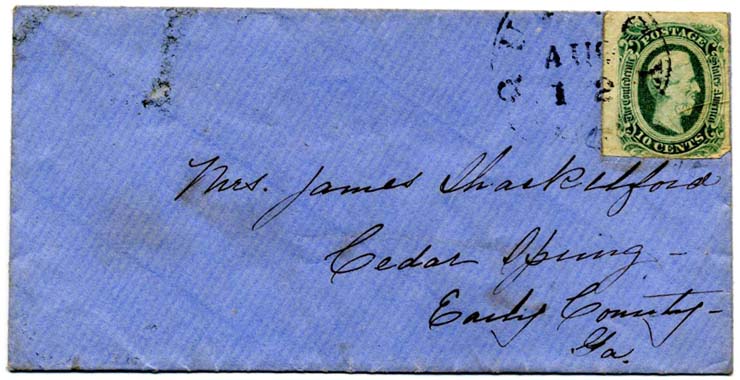 AUG
12
POSTAGE
The Confederate States America
10 CENTS
Mrs. James Shackelford
Cedar Spring -
Early County -
Ga.